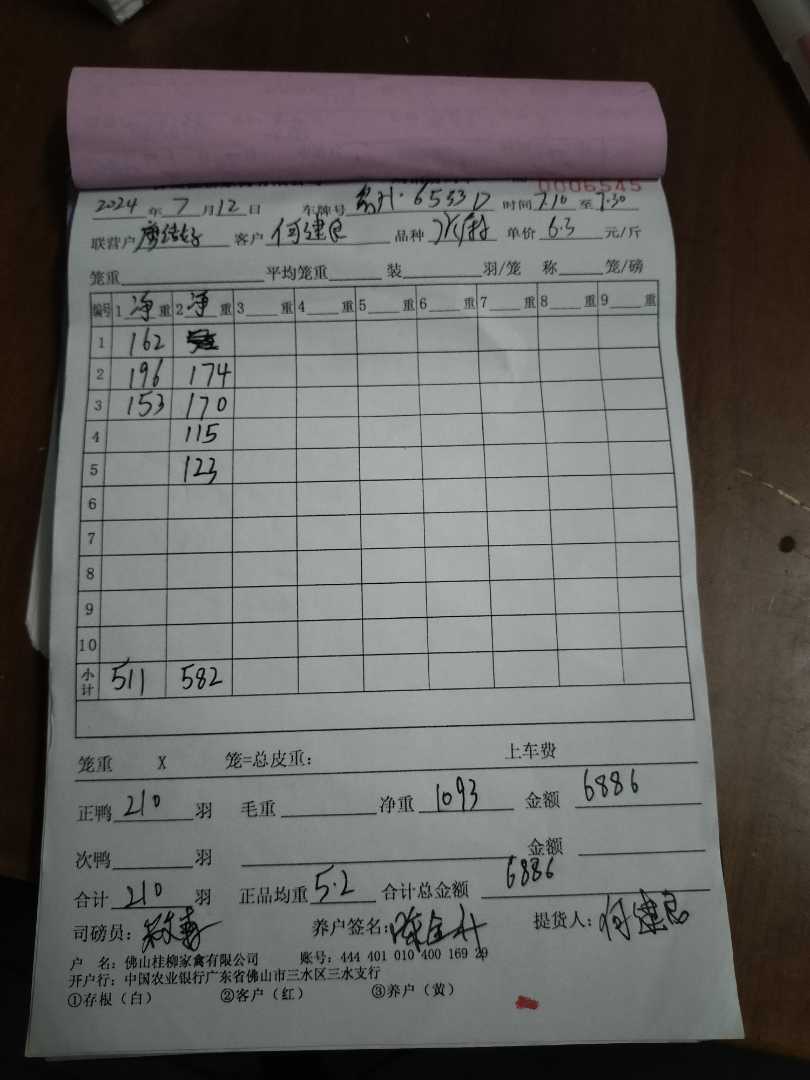 0006545
2024 年 7 月 12 日 车牌号 6533D 时间 7.10 至 7.30
联营户 廖结好 客户 何建良 品种 单价 6.3 元/斤
笼重 平均笼重 装 羽/笼 称 笼/磅
编号 1 净 重 2 净 重 3 重 4 重 5 重 6 重 7 重 8 重 9 重
1 162
2 196 174
3 153 170
4 115
5 123
6
7
8
9
10
小计 511 582
笼重 X 笼=总皮重: 上车费
正鸭 210 羽 毛重 净重 1093 金额 6886
次鸭 羽 金额
合计 210 羽 正品均重 5.2 合计总金额 6886
司磅员: 养户签名: 陈金升 提货人: 何建良
户 名: 佛山桂柳家禽有限公司 账号: 444 401 010 400 169 29
开户行: 中国农业银行广东省佛山市三水区三水支行
①存根（白） ②客户（红） ③养户（黄）